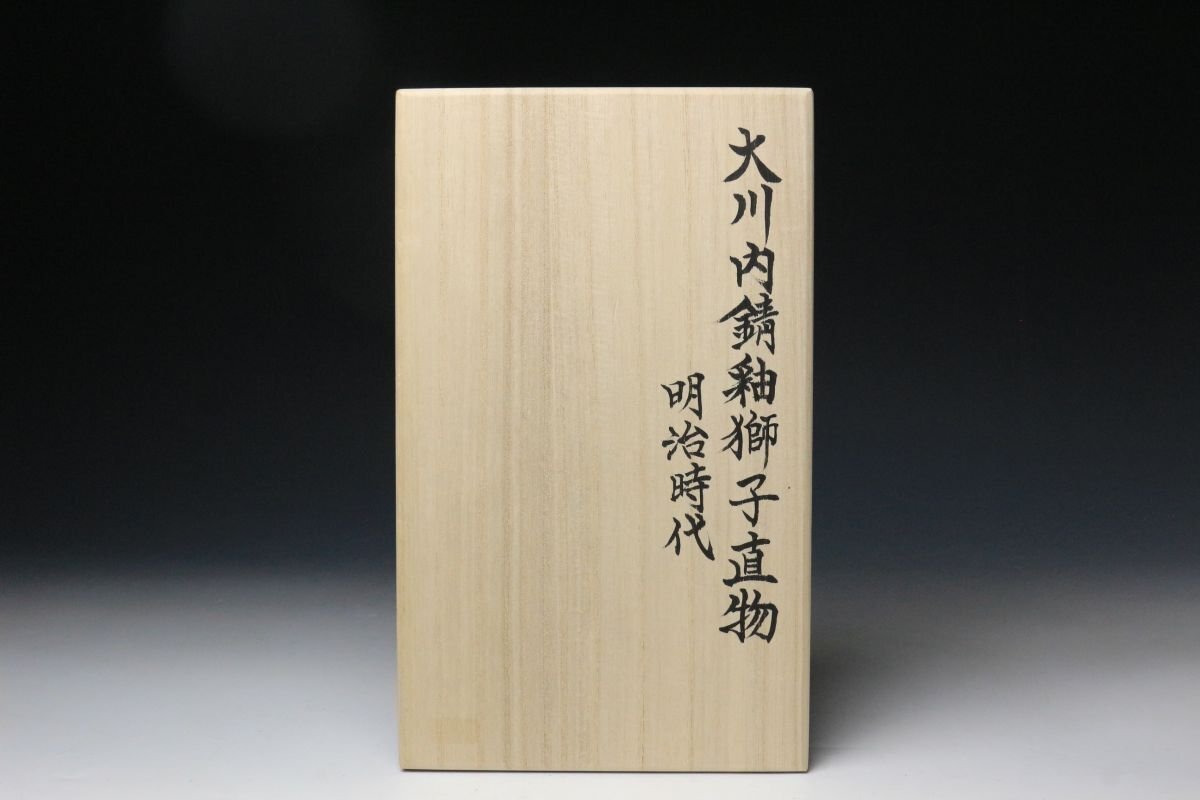 大川内錆釉獅子直物
明治時代